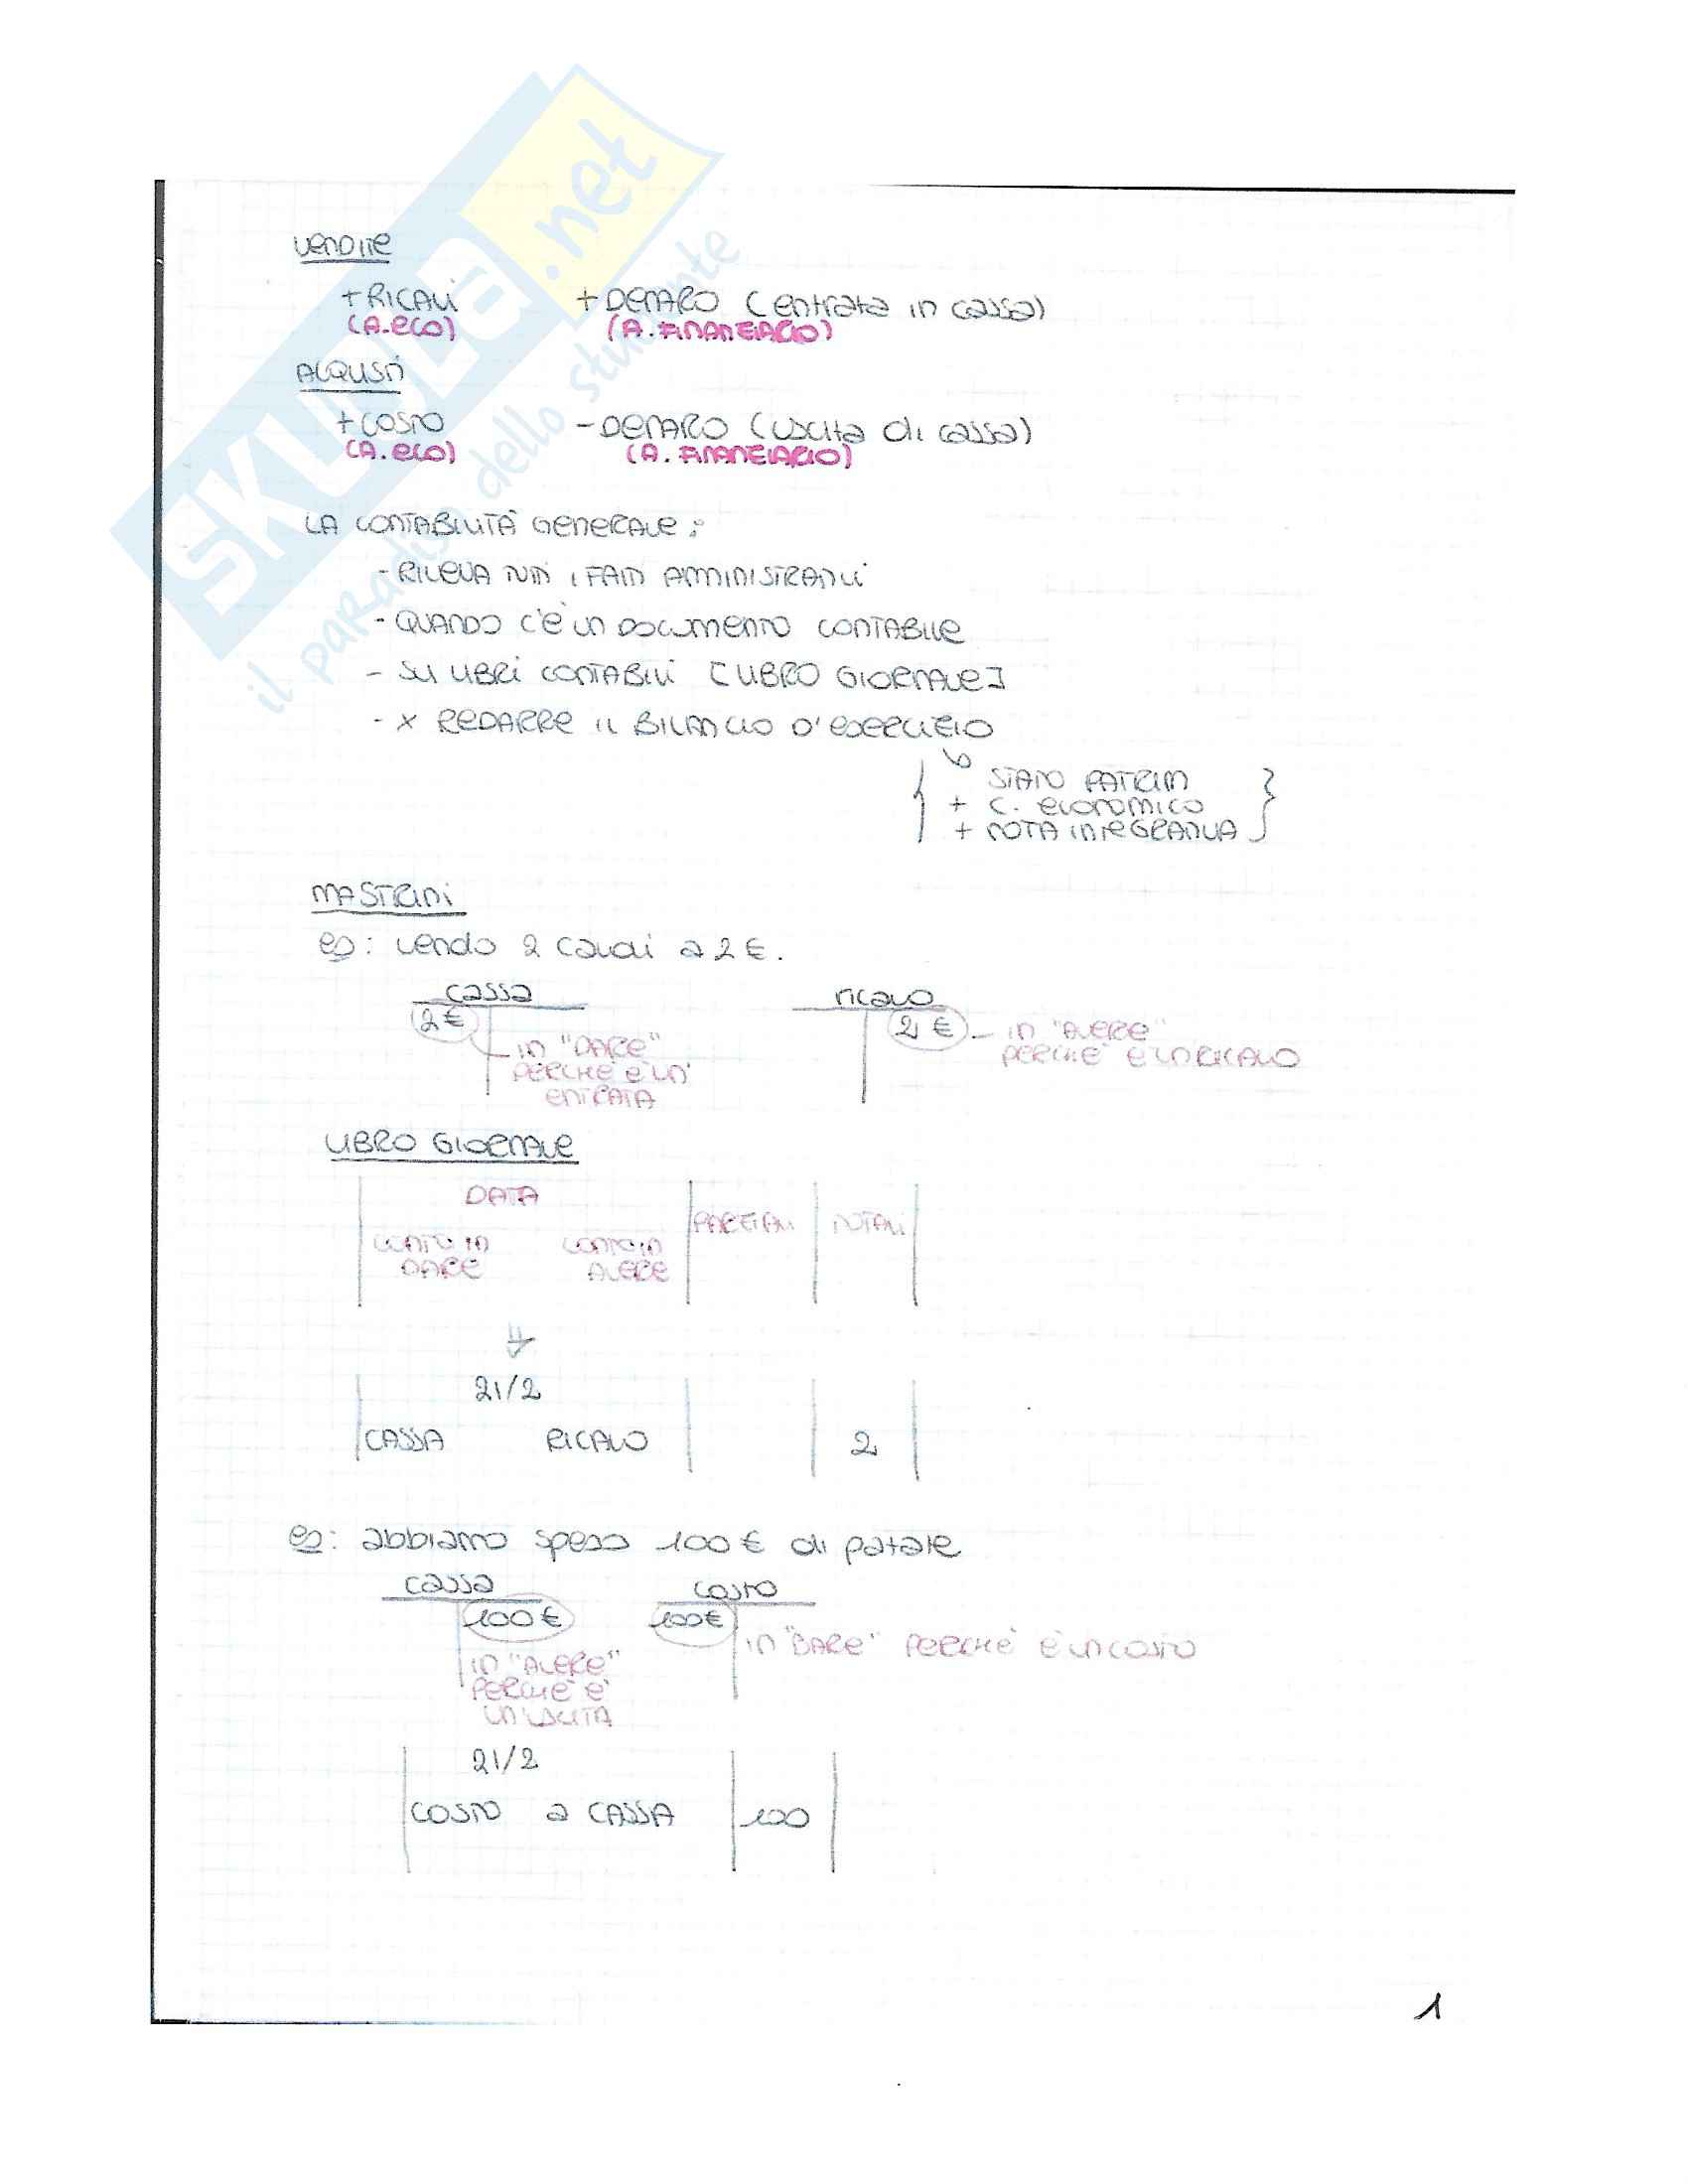 SKUOLA.net
il paradiso dello studente
VENDITE
+ RICAVI + DENARO (entrata in cassa)
(A. ECO) (A. FINANZIARIO)
ACQUISTI
+ COSTO - DENARO (uscita di cassa)
(A. ECO) (A. FINANZIARIO)
LA CONTABILITÀ GENERALE:
- RILEVA TUTTI I FATTI AMMINISTRATIVI
- QUANDO C'È UN DOCUMENTO CONTABILE
- SU LIBRI CONTABILI [LIBRO GIORNALE]
- X REDARRE IL BILANCIO D'ESERCIZIO
STATO PATRIM
+ C. ECONOMICO
+ NOTA INTEGRATIVA
MASTRINI
es: vendo 2 cavai a 2€.
cassa ricavo
2€ 2€ in "AVERE"
in "DARE" PERCHÈ È UN RICAVO
PERCHÈ È UN'
ENTRATA
LIBRO GIORNALE
DATA
PARZIALI TOTALI
CONTO IN CONTO IN
DARE AVERE
21/2
CASSA RICAVO 2
es: abbiamo speso 100€ di patate
cassa costo
100€ 100€
in "DARE" PERCHÈ È UN COSTO
in "AVERE"
PERCHÈ È
UN'USCITA
21/2
COSTO a CASSA 100
1